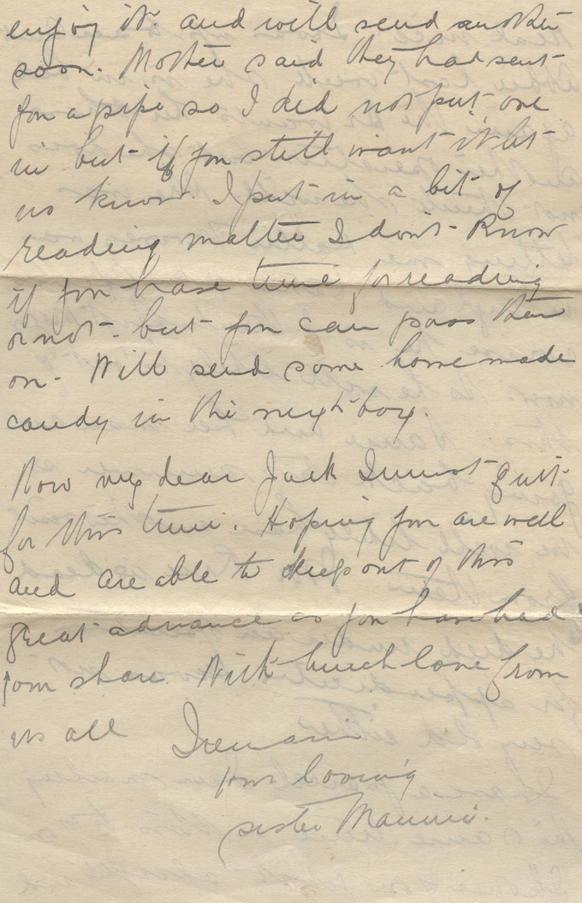 enjoy it and will send another
soon. Mother said they had sent
for a pipe so I did not put one
in but if you still want it let
us know. I put in a bit of
reading matter I don't know
if you have time for reading
or not - but you can pass them
on. Will send some home made
candy in the next box.
Now my dear Jack I must quit
for this time. Hoping you are well
and are able to keep out of this
great advance as you have had
your share. With much love from
us all I remain
your loving
sister Mamie.